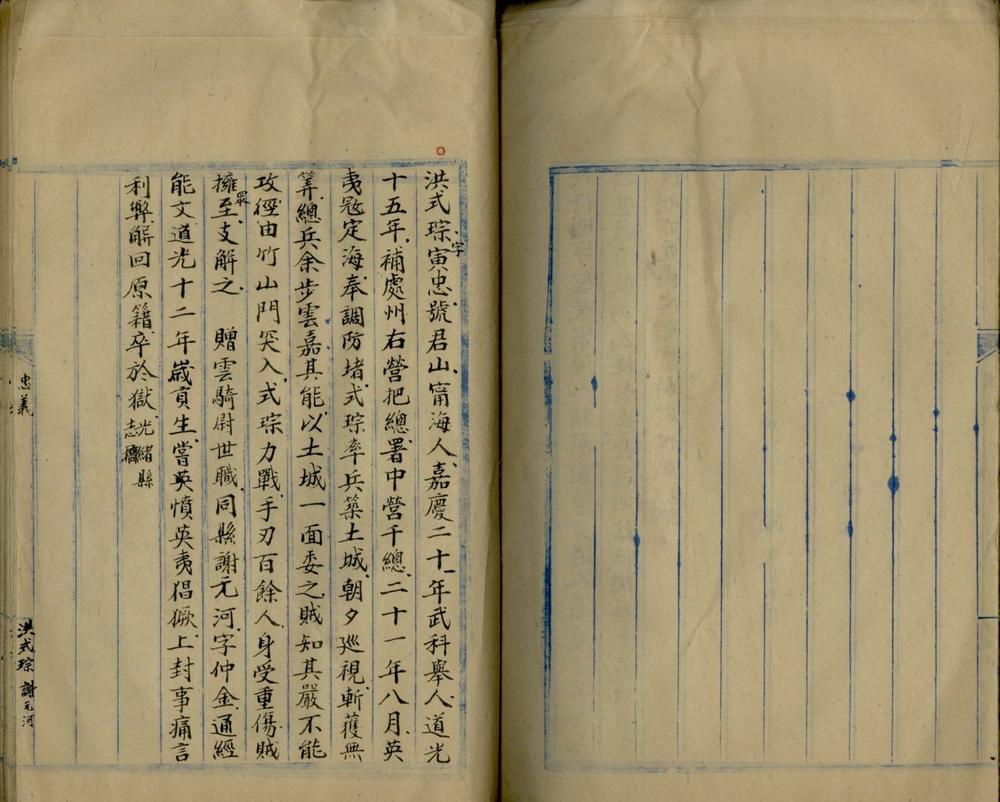 洪式琮字寅忠號君山甯海人嘉慶二十一年武科舉人道光
十五年補處州右營把總署中營千總二十一年八月英
夷寇定海奉調防堵式琮率兵築土城朝夕廵視斬獲無
筭總兵余步雲嘉其能以土城一面委之賊知其嚴不能
攻徑由竹山門突入式琮力戰手刃百餘人身受重傷賊
擁眾至支解之 贈雲騎尉世職同縣謝元河字仲金通經
能文道光十二年歲貢生嘗英憤英夷猖獗上封事痛言
利弊解回原籍卒於獄光緒縣
志稿
忠義
洪式琮 謝元河